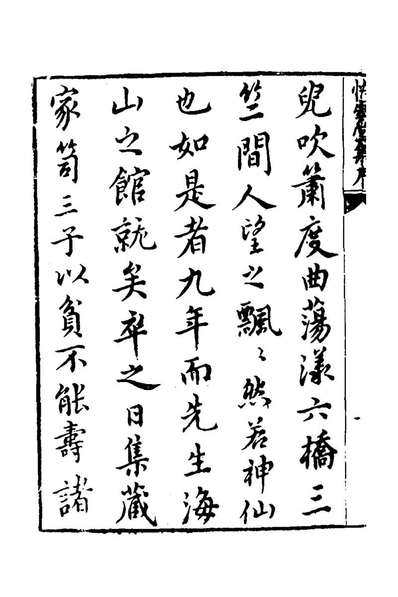 快雪堂集序
兒吹簫度曲蕩漾六橋三
竺間人望之飄〻然若神仙
也如是者九年而先生海
山之館就矣卒之日集藏
家笥三子以貧不能壽諸